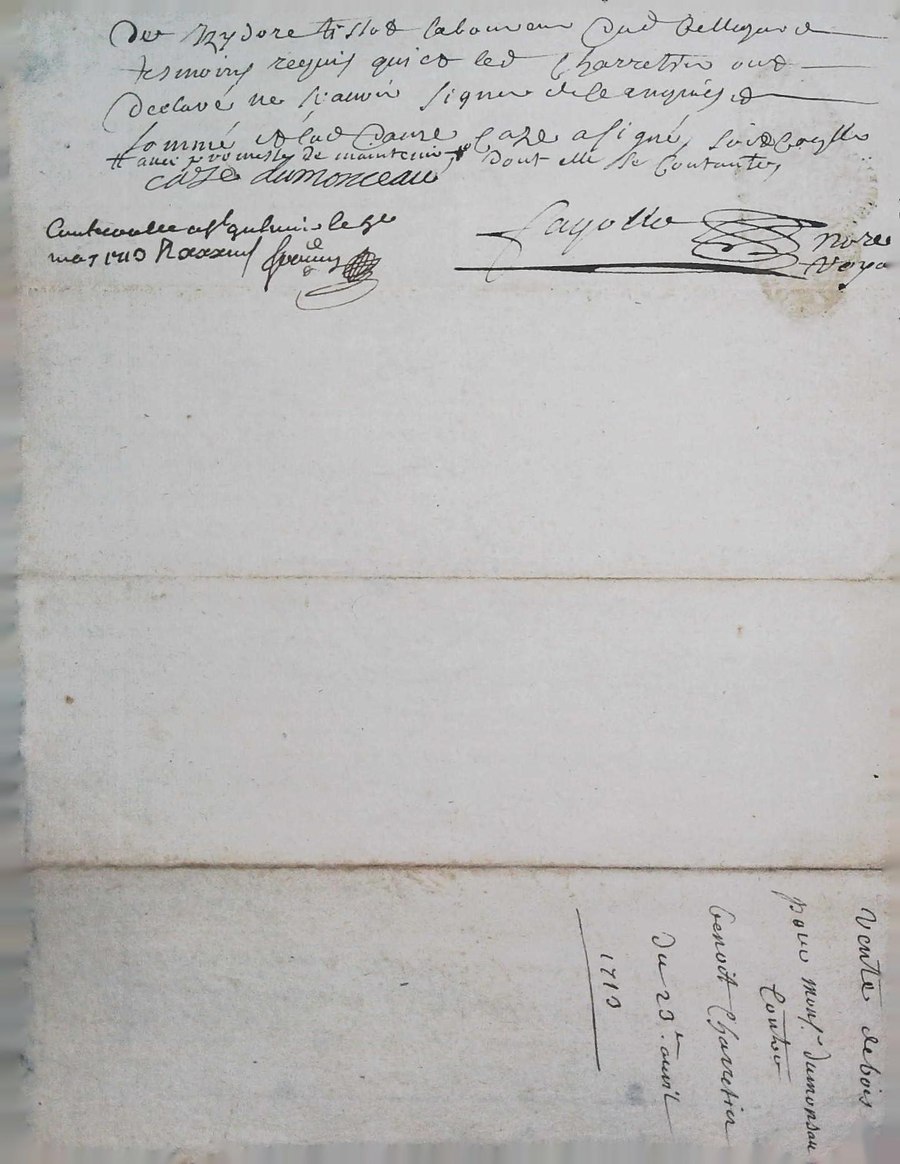 de Izydore tissot laboureur dud bellegarde
tesmoins requis qui et led Charretier ont
declaré ne scauoir signer de ce enquis et
sommé et lad Dame Caze a signé,
# auec promesse de maintenir, dont elle se Contante,
caze dumonceau
may 1713
Fayolle
Nore
Roya
vente de bois
pour mons.r dumonsau
Contre
benoit Charretier
du 23.e auril
1713